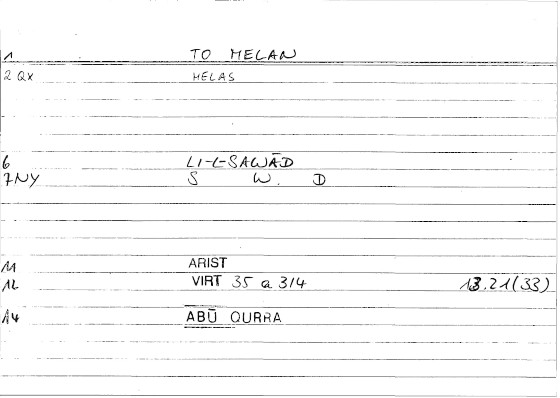 1 TO MELAN
2 QX MELAS
6 LI-L-SAWĀD
7NY S W. D
11 ARIST
12 VIRT 35 a 3/4 13.21(33)
14 ABŪ QURRA